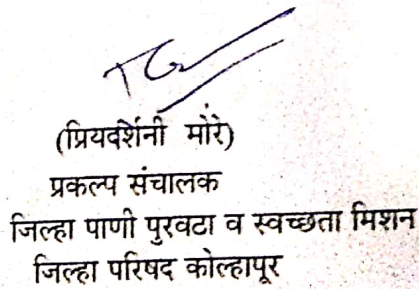 (प्रियदर्शिनी मोरे)
प्रकल्प संचालक
जिल्हा पाणी पुरवटा व स्वच्छता मिशन
जिल्हा परिषद कोल्हापूर